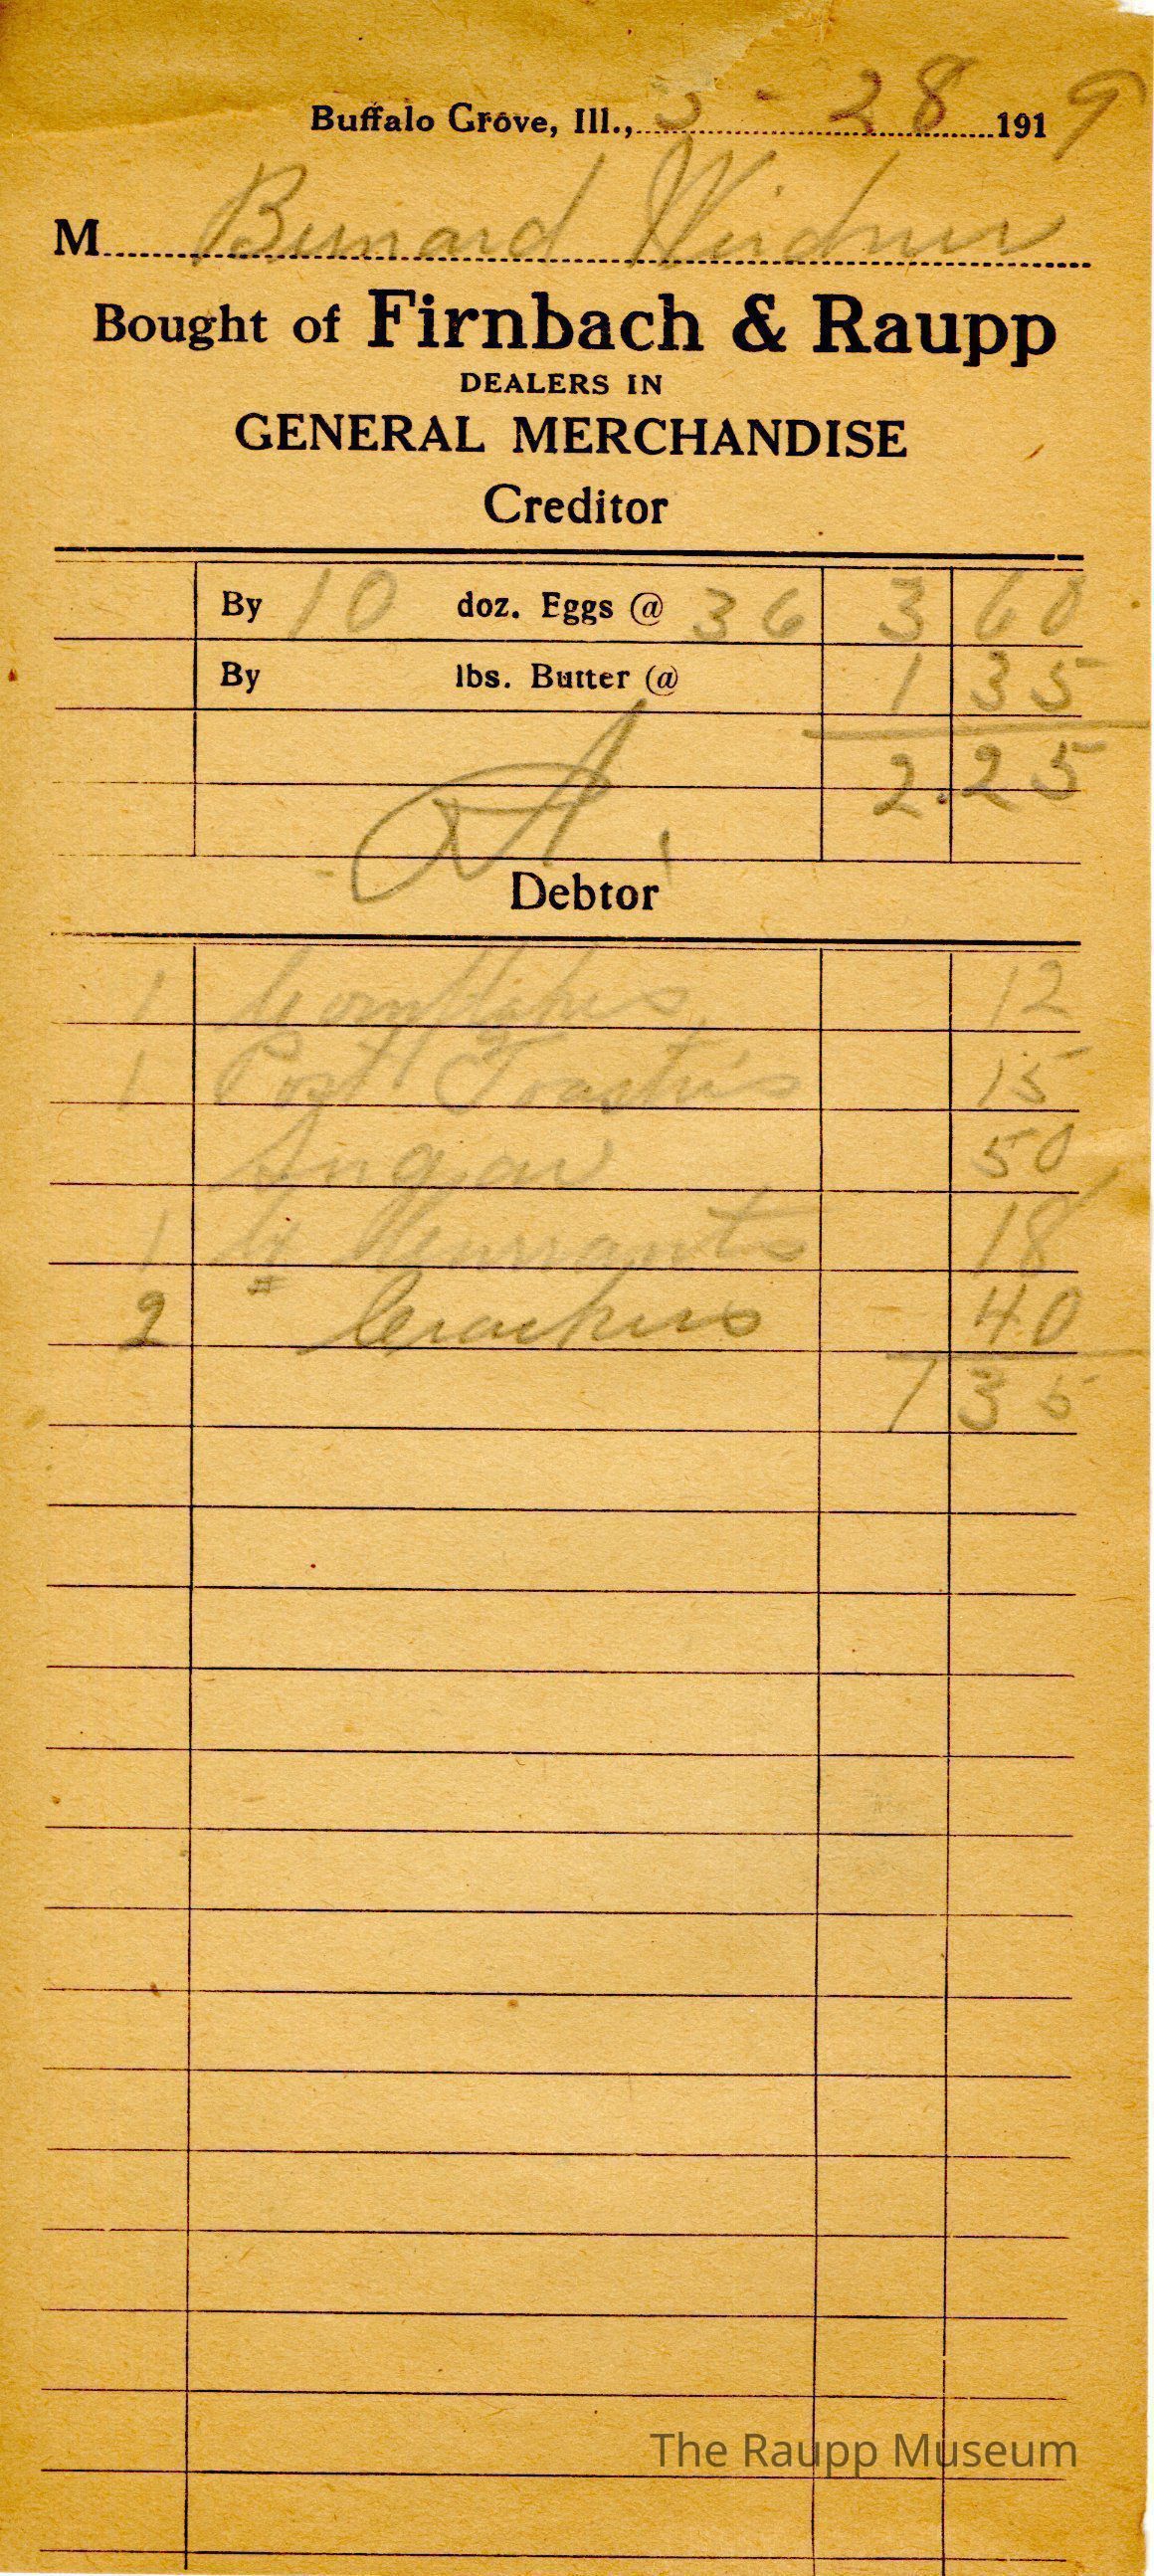 Buffalo Grove, Ill., 3 - 28 1919
M Bernard Weidner
Bought of Firnbach & Raupp
DEALERS IN
GENERAL MERCHANDISE
Creditor
By 10 doz. Eggs @ 36 3 60
By lbs. Butter @ 1 35
2.25
Debtor
1 Cornflakes 12
1 Post Toasties 15
Sugar 50
1 # Currants 18
2 " Crackers 40
1 35
The Raupp Museum